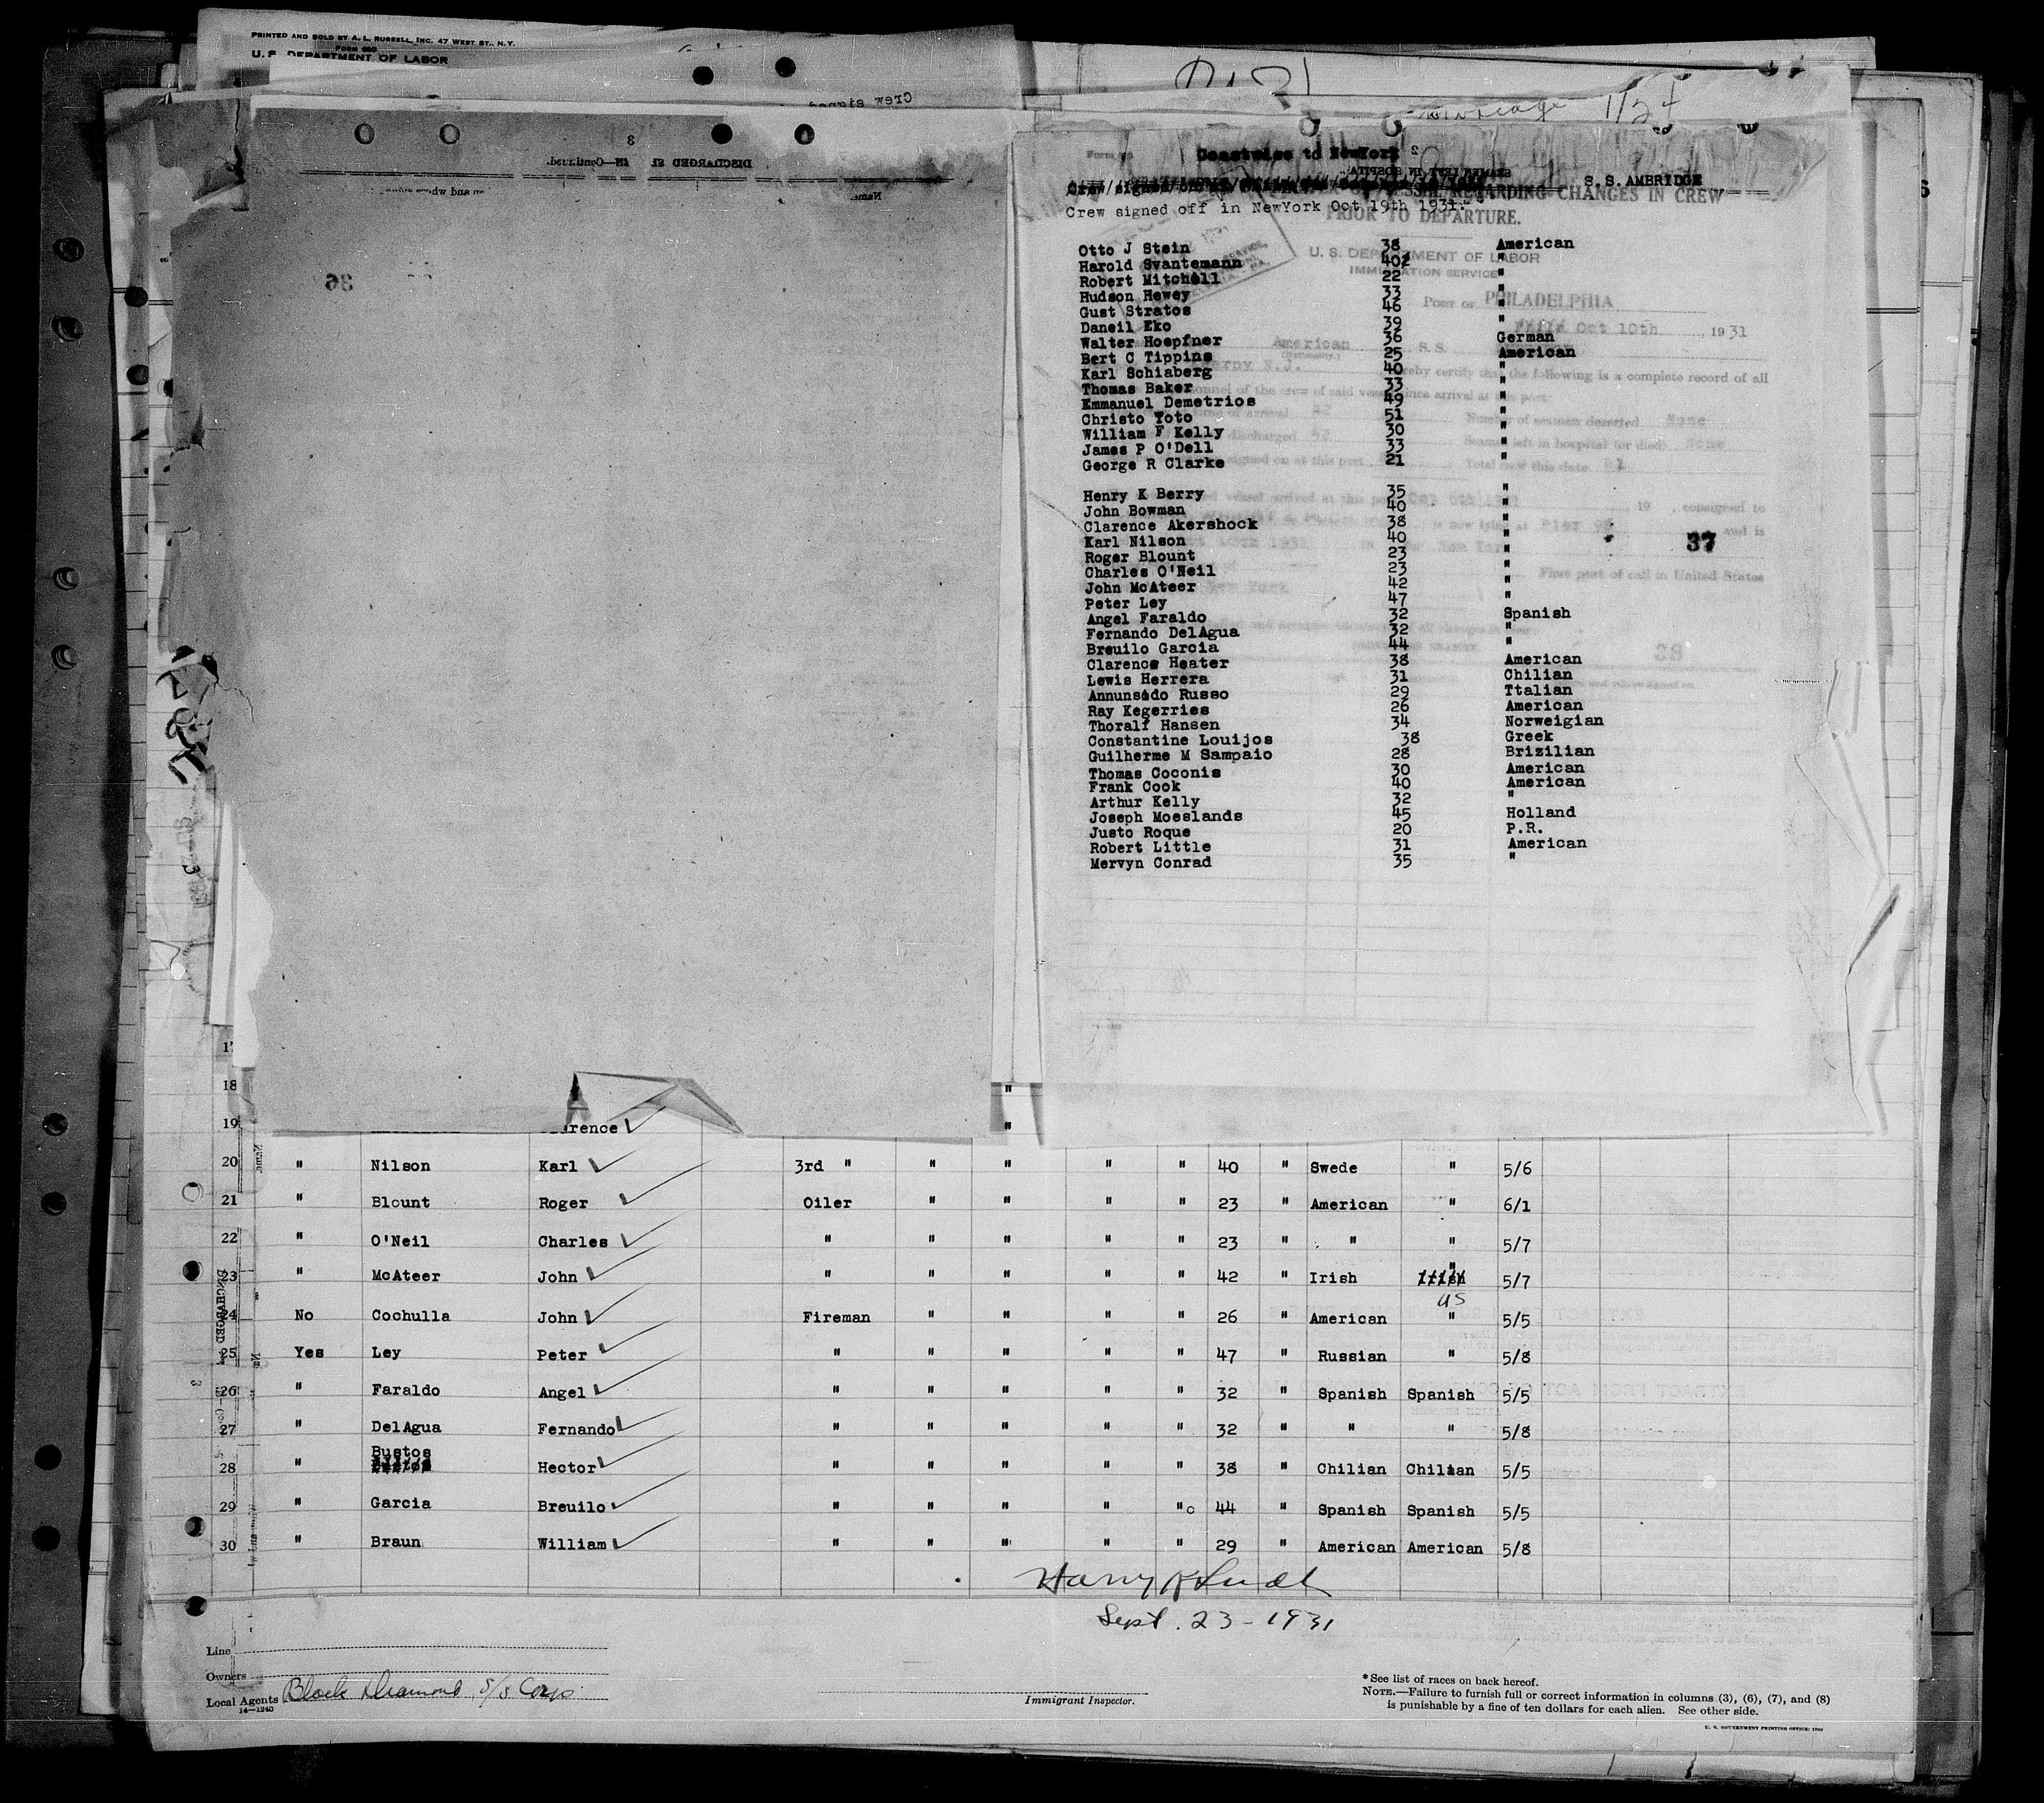 PRINTED AND SOLD BY A. L. RUSSELL, INC. 47 WEST ST., N.Y.
U. S. DEPARTMENT OF LABOR
Crew signed
DISCHARGED
—Continued.
Name
36
Coastwise to NewYork
S.S.AMBRIDGE
REGARDING CHANGES IN CREW
Crew signed off in NewYork Oct 19th 1931.
PRIOR TO DEPARTURE.
U. S. DEPARTMENT OF LABOR
IMMIGRATION SERVICE
PORT OF PHILADELPHIA
Oct 10th, 1931
American S. S.
certify that the following is a complete record of all
personnel of the crew of said vessel since arrival at this port:
Number of seamen deserted None
Seamen left in hospital (or died) None
Total crew this date
consigned to
and is
First port of call in United States
38
Otto J Stein 38 American
Harold Svantemann 40 "
Robert Mitchell 22 "
Hudson Hewey 33 "
Gust Stratos 46 "
Daneil Eko 39 "
Walter Hoepfner 36 German
Bert C Tippins 25 American
Karl Schiaberg 40 "
Thomas Baker 33 "
Emmanuel Demetrios 49 "
Christo Yoto 51 "
William F Kelly 30 "
James P O'Dell 33 "
George R Clarke 21 "
Henry K Berry 35 "
John Bowman 40 "
Clarence Akershock 38 "
Karl Nilson 40 "
37
Roger Blount 23 "
Charles O'Neil 23 "
John McAteer 42 "
Peter Ley 47 "
Angel Faraldo 32 Spanish
Fernando DelAgua 32 "
Breuilo Garcia 44 "
Clarence Heater 38 American
Lewis Herrera 31 Chilian
Annunsido Russo 29 Ttalian
Ray Kegerries 26 American
Thoralf Hansen 34 Norweigian
Constantine Louijos 38 Greek
Guilherme M Sampaio 28 Brizilian
Thomas Coconis 30 American
Frank Cook 40 American
Arthur Kelly 32 "
Joseph Moeslands 45 Holland
Justo Roque 20 P.R.
Robert Little 31 American
Mervyn Conrad 35 "
17
18 "
19 arence "
20 " Nilson Karl 3rd " " " " " 40 " Swede " 5/6
21 " Blount Roger Oiler " " " " 23 " American " 6/1
22 " O'Neil Charles " " " " " 23 " " " 5/7
23 " McAteer John " " " " " 42 " Irish " 5/7
US
24 No Cochulla John Fireman " " " " 26 " American " 5/5
25 Yes Ley Peter " " " " " 47 " Russian " 5/8
26 " Faraldo Angel " " " " " 32 " Spanish Spanish 5/5
27 " DelAgua Fernando " " " " " 32 " " " 5/8
28 " Bustos Hector " " " " " 38 " Chilian Chilian 5/5
29 " Garcia Breuilo " " " " " 44 " Spanish Spanish 5/5
30 " Braun William " " " " " 29 " American American 5/8
Sept. 23-1931
Line
Owners
Local Agents Black Diamond S/S Corp.
14—1240
Immigrant Inspector.
*See list of races on back hereof.
NOTE.—Failure to furnish full or correct information in columns (3), (6), (7), and (8)
is punishable by a fine of ten dollars for each alien. See other side.
U. S. GOVERNMENT PRINTING OFFICE: 1929